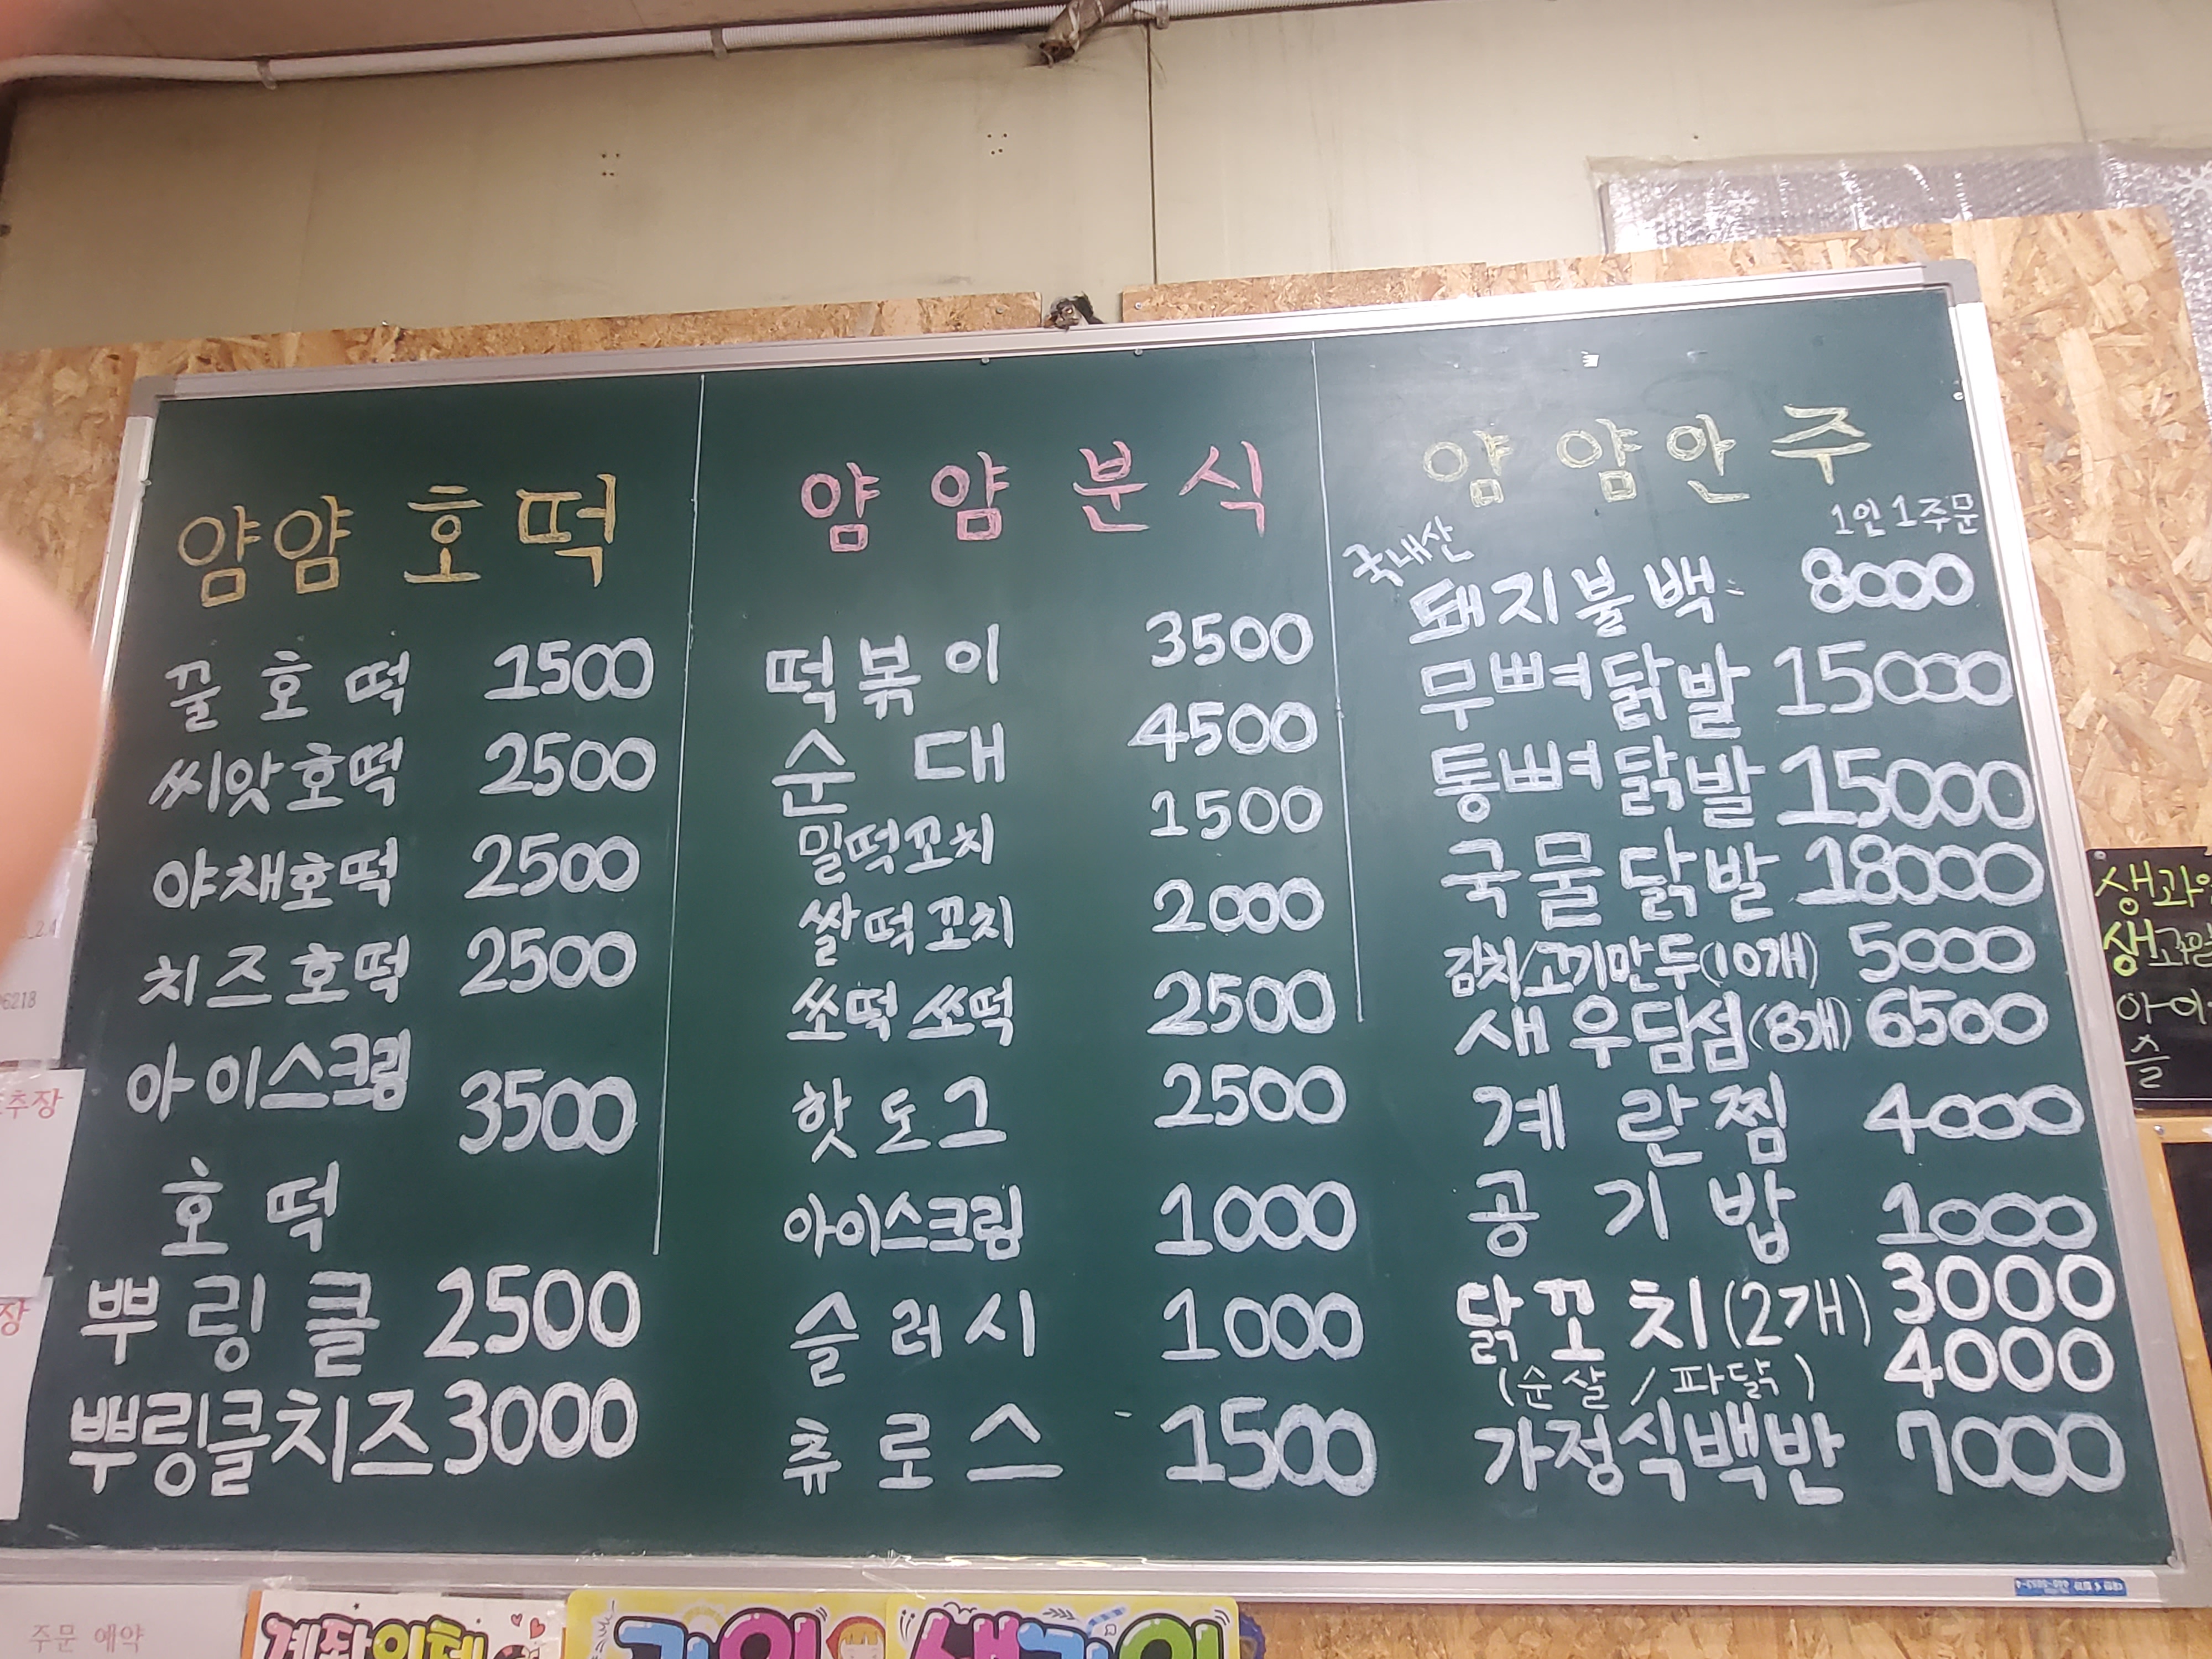 얌얌 호떡
꿀호떡 1500
씨앗호떡 2500
야채호떡 2500
치즈호떡 2500
아이스크림
호떡 3500
뿌링클 2500
뿌링클치즈 3000
얌얌분식
떡볶이 3500
순대 4500
밀떡꼬치 1500
쌀떡꼬치 2000
쏘떡쏘떡 2500
핫도그 2500
아이스크림 1000
슬러시 1000
츄로스 1500
얌얌안주
1인 1주문
국내산
돼지불백 8000
무뼈닭발 15000
통뼈닭발 15000
국물닭발 18000
김치/고기만두(10개) 5000
새우딤섬(8개) 6500
계란찜 4000
공기밥 1000
닭꼬치(2개) 3000
(순살/파닭) 4000
가정식백반 7000
생과일
생과일
아이
슬
6218
추장
장
주문 예약
계좌이체